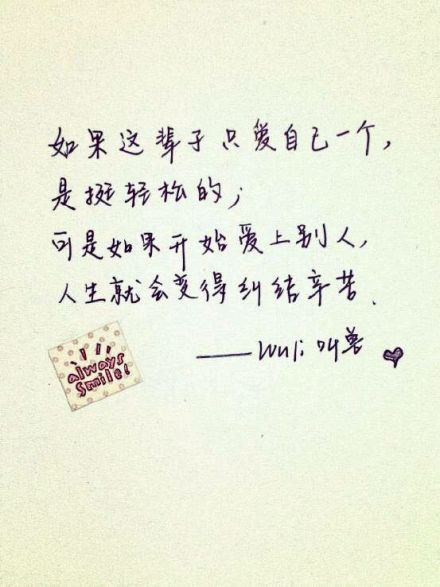 如果这辈子只爱自己一个，
是挺轻松的；
可是如果开始爱上别人，
人生就会变得纠结辛苦.
——wuli叫兽
always
smile!